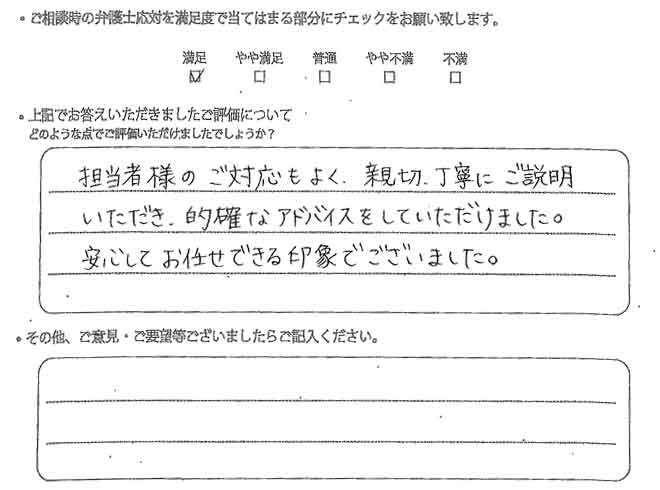 ・ご相談時の弁護士応対を満足度で当てはまる部分にチェックをお願い致します。
満足 やや満足 普通 やや不満 不満
☑ □ □ □ □
・上記でお答えいただきましたご評価について
どのような点でご評価いただけましたでしょうか?
担当者様のご対応もよく、親切、丁寧にご説明
いただき、的確なアドバイスをしていただけました。
安心してお任せできる印象でございました。
・その他、ご意見・ご要望等ございましたらご記入ください。